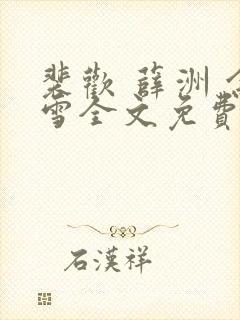 裴歡 薛洲 念
雪全文免費
石漢祥